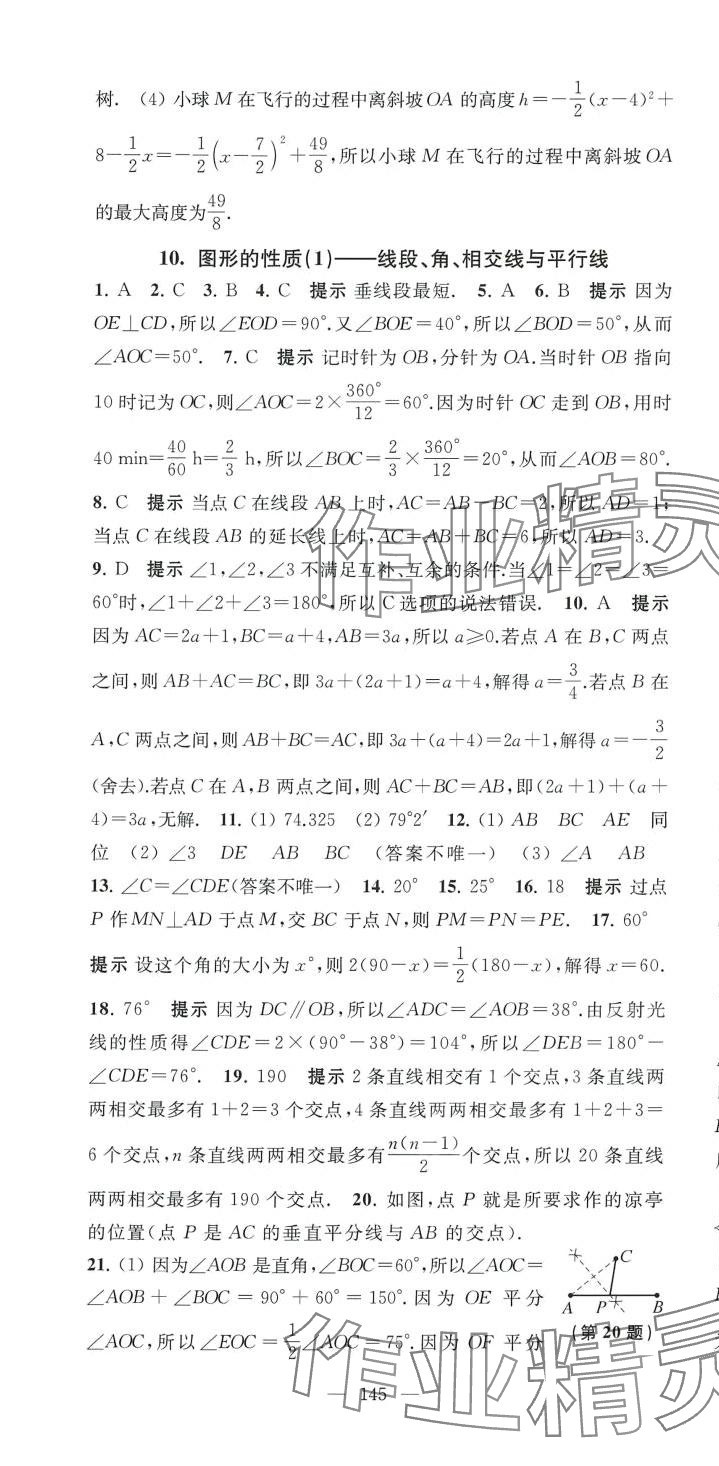 树. (4) 小球 M 在飞行的过程中离斜坡 OA 的高度 h=-1/2(x-4)²+
8-1/2x=-1/2(x-7/2)²+49/8,所以小球 M 在飞行的过程中离斜坡 OA
的最大高度为49/8.
10. 图形的性质(1)——线段、角、相交线与平行线
1. A 2. C 3. B 4. C 提示 垂线段最短. 5. A 6. B 提示 因为
OE⊥CD,所以∠EOD=90°.又∠BOE=40°,所以∠BOD=50°,从而
∠AOC=50°. 7. C 提示 记时针为 OB,分针为 OA.当时针 OB 指向
10 时记为 OC,则∠AOC=2×360°/12=60°.因为时针 OC 走到 OB,用时
40 min=40/60 h=2/3 h,所以∠BOC=2/3×360°/12=20°,从而∠AOB=80°.
8. C 提示 当点 C 在线段 AB 上时,AC=AB-BC=2,所以 AD=1;
当点 C 在线段 AB 的延长线上时,AC=AB+BC=6,所以 AD=3.
9. D 提示 ∠1,∠2,∠3 不满足互补、互余的条件.当∠1=∠2=∠3=
60°时,∠1+∠2+∠3=180°,所以 C 选项的说法错误. 10. A 提示
因为 AC=2a+1,BC=a+4,AB=3a,所以 a≥0.若点 A 在 B,C 两点
之间,则 AB+AC=BC,即 3a+(2a+1)=a+4,解得 a=3/4.若点 B 在
A,C 两点之间,则 AB+BC=AC,即 3a+(a+4)=2a+1,解得 a=-3/2
(舍去).若点 C 在 A,B 两点之间,则 AC+BC=AB,即(2a+1)+(a+
4)=3a,无解. 11. (1) 74.325 (2) 79°2′ 12. (1) AB BC AE 同
位 (2) ∠3 DE AB BC (答案不唯一) (3) ∠A AB
13. ∠C=∠CDE(答案不唯一) 14. 20° 15. 25° 16. 18 提示 过点
P 作 MN⊥AD 于点 M,交 BC 于点 N,则 PM=PN=PE. 17. 60°
提示 设这个角的大小为 x°,则 2(90-x)=1/2(180-x),解得 x=60.
18. 76° 提示 因为 DC∥OB,所以∠ADC=∠AOB=38°.由反射光
线的性质得∠CDE=2×(90°-38°)=104°,所以∠DEB=180°-
∠CDE=76°. 19. 190 提示 2 条直线相交有 1 个交点,3 条直线两
两相交最多有 1+2=3 个交点,4 条直线两两相交最多有 1+2+3=
6 个交点,n 条直线两两相交最多有n(n-1)/2个交点,所以 20 条直线
两两相交最多有 190 个交点. 20. 如图,点 P 就是所要求作的凉亭
的位置(点 P 是 AC 的垂直平分线与 AB 的交点).
21. (1) 因为∠AOB 是直角,∠BOC=60°,所以∠AOC=
∠AOB+∠BOC=90°+60°=150°.因为 OE 平分
∠AOC,所以∠EOC=1/2∠AOC=75°.因为 OF 平分
C
A P B
(第 20 题)
— 145 —
作业精灵
作业精灵